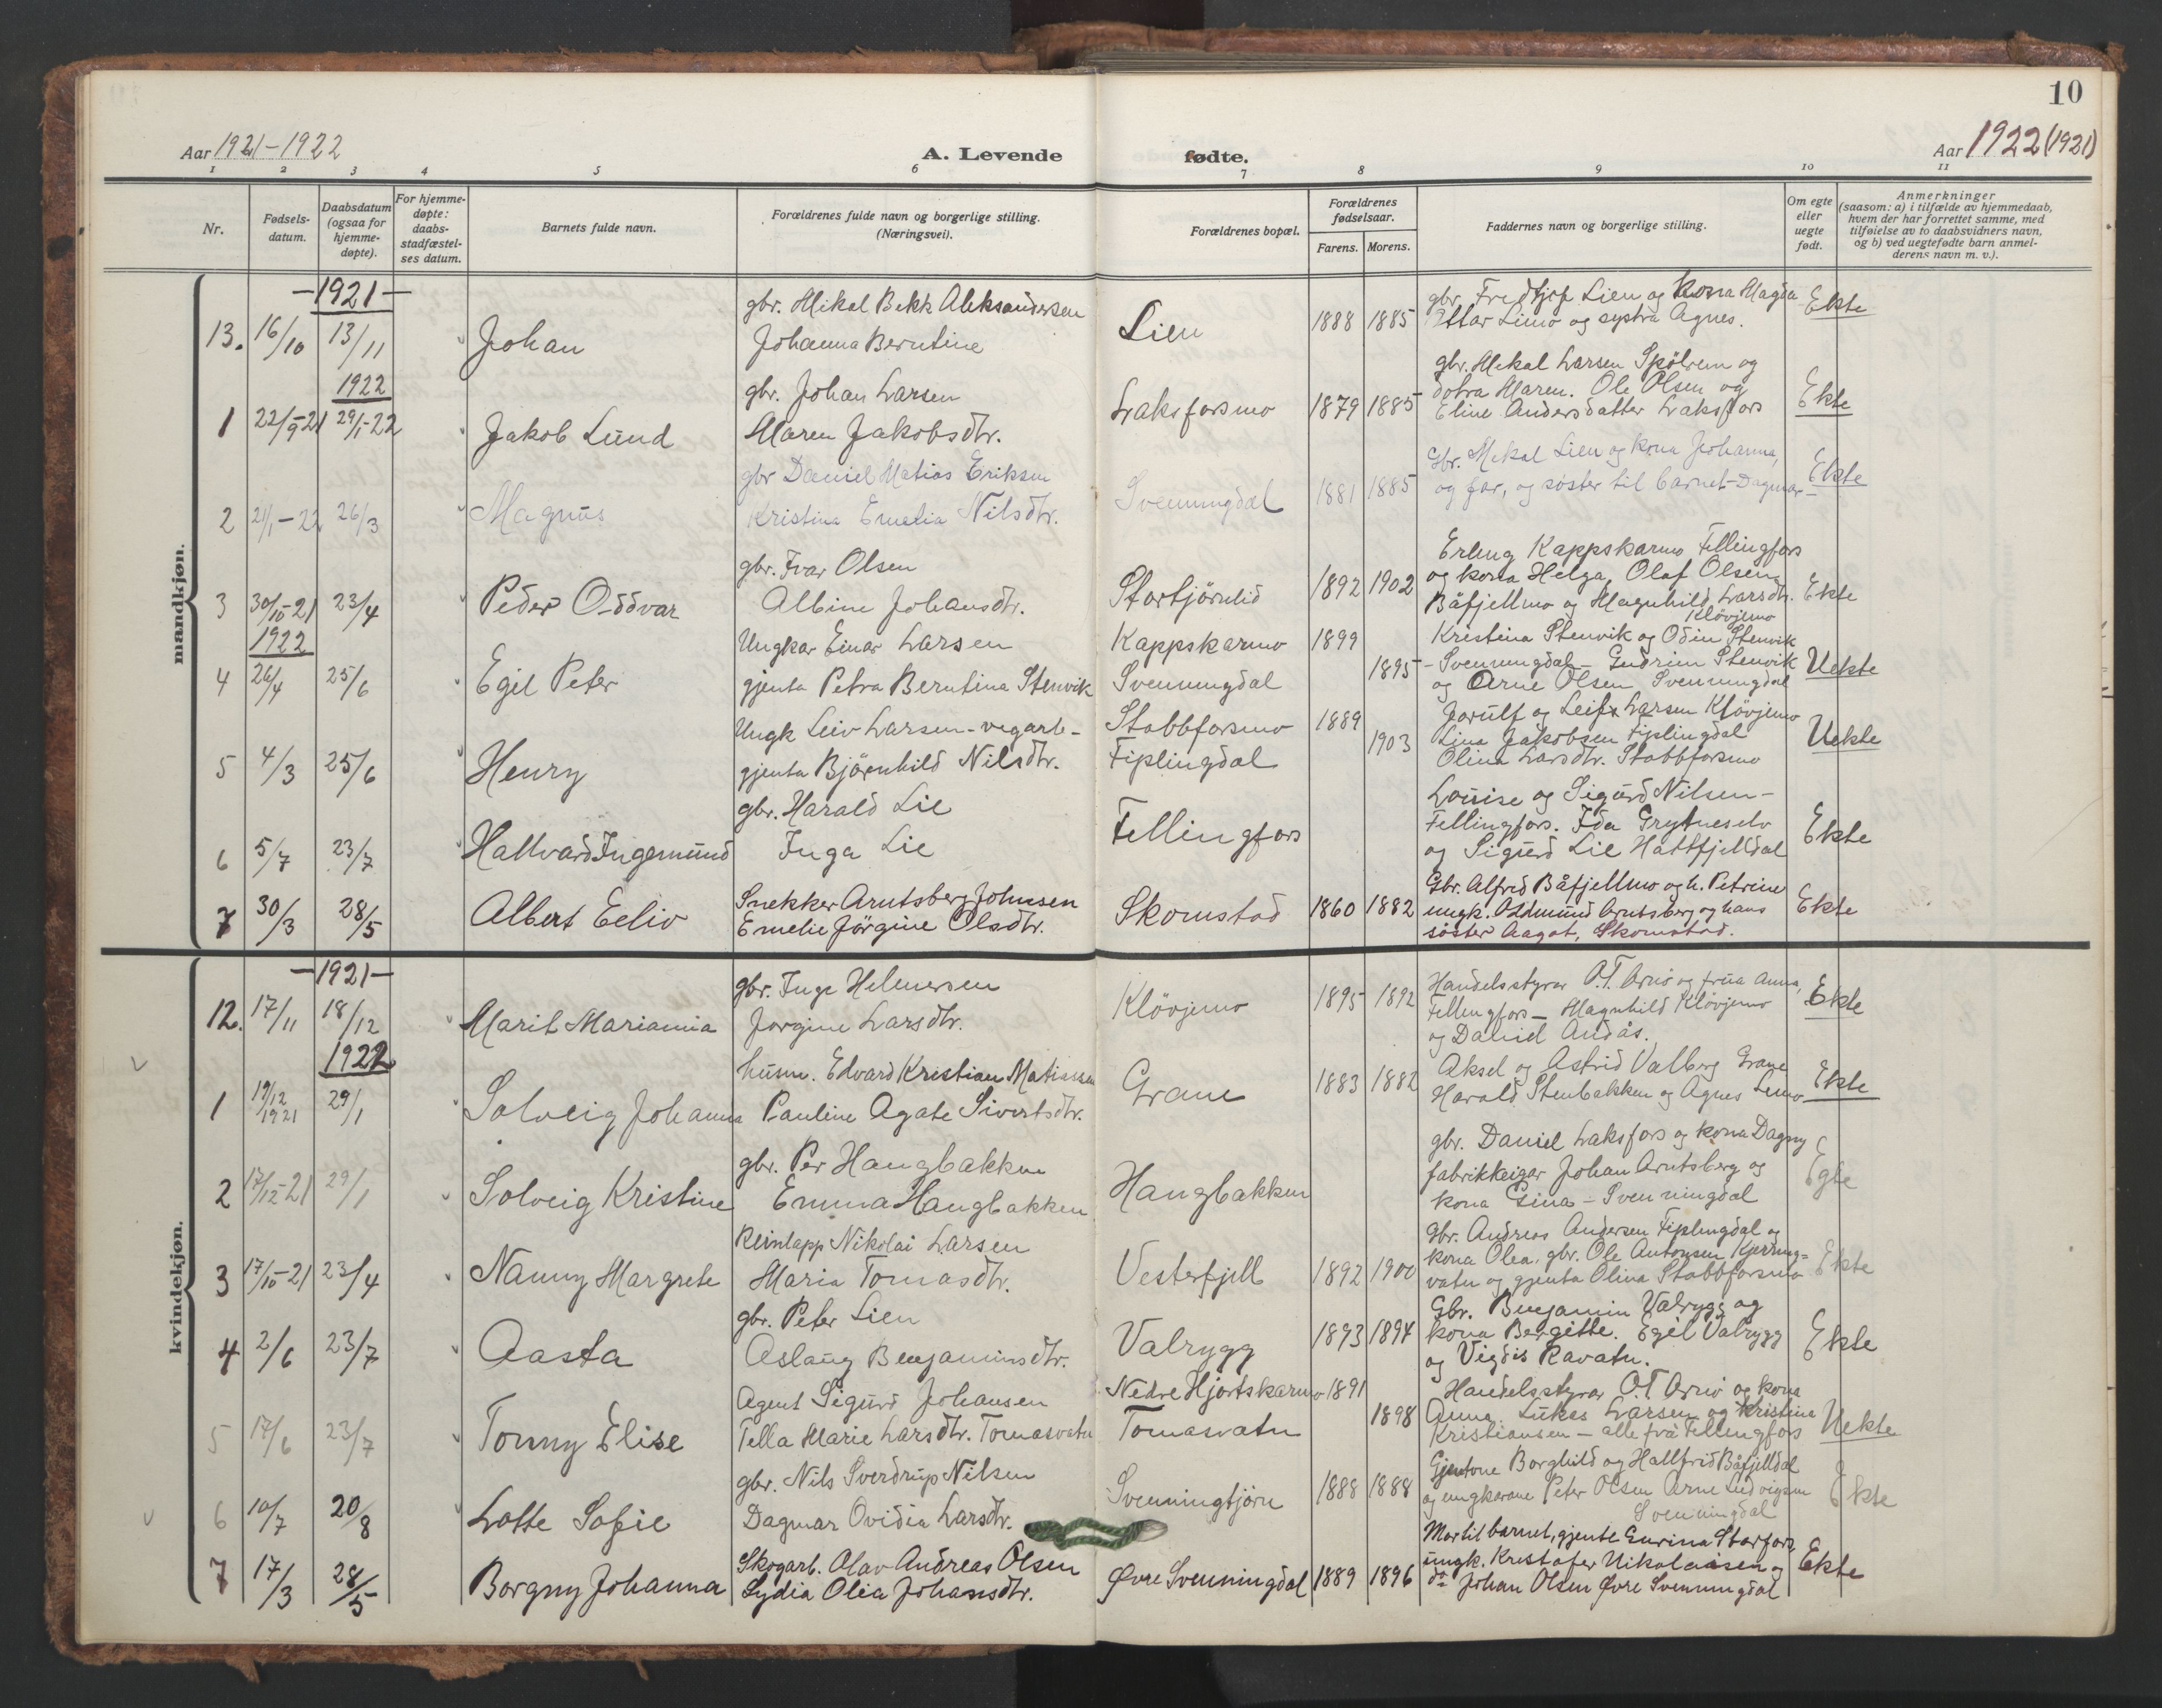 10
Aar 1921-1922
A. Levende
fødte.
Aar 1922 (1921)
1 2 3 4 5 6 7 8 9 10 11
Nr.
Fødsels-
datum.
Daabsdatum
(ogsaa for
hjemme-
døpte).
For hjemme-
døpte:
daabs-
stadfæstel-
ses datum.
Barnets fulde navn.
Forældrenes fulde navn og borgerlige stilling.
(Næringsvei).
Forældrenes bopæl.
Forældrenes
fødselsaar.
Farens. Morens.
Faddernes navn og borgerlige stilling.
Om egte
eller
uegte
født.
Anmerkninger
(saasom: a) i tilfælde av hjemmedaab,
hvem der har forrettet samme, med
tilføielse av to daabsvidners navn,
og b) ved uegtefødte barn anmel-
derens navn m. v.).
mandkjøn.
-1921-
13. 16/10 13/11 Johan
gbr. Mikal Bekk Aleksandersen
Johanna Berntine
Lien 1888 1885
gbr. Fredtjof Lien og kona Magda
Ottar Limo og systra Agnes.
Ekte
1922
1 22/9-21 29/1-22 Jakob Lund
gbr. Johan Larsen
Maren Jakobsdtr.
Laksforsmo 1879 1885
gbr. Mikal Larsen Spölrem og
dotra Maren. Ole Olsen og
Eline Andersdatter Laksfors
Ekte
2 21/1-22 26/3 Magnus
gbr Daniel Matias Eriksen
Kristina Emelia Nilsdtr.
Svenningdal 1881 1885
Gbr. Mikal Lien og kona Johanna,
og far, og søster til barnet-Dagmar-
Ekte
3 30/10-21 23/4 Peder Oddvar
gbr. Ivar Olsen
Albine Johansdtr.
Stortjörnlid 1892 1902
Erling Kappskarmo Fellingfors
og kona Helga, Olaf Olsen
Båfjellmo og Magnhild Larsdtr.
Klövjemo
Ekte
1922
4 26/4 25/6 Egil Peter
Ungkar Einar Larsen
gjenta Petra Berntina Stenvik
Kappskarmo 1899
Svenningdal 1895
Kristina Stenvik og Odin Stenvik
- Svenningdal - Gudrun Stenvik
og Arne Olsen Svenningdal
Uekte
5 4/3 25/6 Henry
Ungk Leiv Larsen - vegarb-
gjenta Björnhild Nilsdtr.
Stabbforsmo 1889
Fiplingdal 1903
Jorulf og Leif Larsen Klövjemo
Lina Jakobsen Fiplingdal
Olina Larsdtr. Stabbforsmo
Uekte
6 5/7 23/7 Hallvard Ingemund
gbr. Harald Lie
Inga Lie
Fellingfors
Louise og Sigurd Nilsen-
Fellingfors. Ida Grytneselv
og Sigurd Lie Hattfjelldal
Ekte
7 30/3 28/5 Albert Eeliv
Snekker Arntsberg Johnsen
Emelie Jörgine Olsdtr.
Skomstad 1860 1882
Gbr. Alfred Båfjellmo og h. Petrine
ungk. Oddmund Arntsberg og hans
søster Aagot, Skomstad.
Ekte
kvindekjøn.
-1921-
12. 17/11 18/12 Marit Marianna
gbr. Inge Helmersen
Jorgine Larsdtr.
Klövjemo 1895 1892
Handelsstyrar O.T. Arnö og frua Anna,
Fellingfors - Magnhild Klövjemo
og Daniel Andås.
Ekte
1922
1 19/12 1921 29/1 Solveig Johanna
husm. Edvard Kristian Matiassen
Pauline Agate Sivertsdtr.
Grane 1883 1882
Aksel og Astrid Valberg Grane
Harald Stenbakken og Agnes Limo
Ekte
2 17/12-21 29/1 Solveig Kristine
gbr. Per Haugbakken
Emma Haugbakken
Haugbakken
gbr. Daniel Laksfors og kona Dagny
fabrikkeigar Johan Arntsberg og
kona Gina - Svenningdal
Egte
3 17/10-21 23/4 Nanny Margrete
Reinlapp Nikolai Larsen
Maria Tomasdtr.
Vesterfjell 1892 1900
Gbr. Andreas Andersen Fiplingdal og
kona Olea, gbr. Ole Antonsen Kjerring-
vatn og gjenta Olina Stabbforsmo
Ekte
4 2/6 23/7 Aasta
gbr. Peter Lien
Aslaug Benjaminsdtr.
Valrygg 1893 1894
Gbr. Benjamin Valrygg og
kona Bergitte. Egil Valrygg
og Vigdis Ravatn.
Ekte
5 17/6 23/7 Tonny Elise
Agent Sigurd Johansen
Tella Marie Larsdtr. Tomasvatn
Nedre Hjortskarmo 1891
Tomasvatn 1898
Handelsstyrar O.T. Arnö og kona
Anna. Lukas Larsen og Kristina
Kristiansen - alle frå Fellingfors
Uekte
6 10/7 20/8 Lotte Sofie
gbr. Nils Sverdrup Nilsen
Dagmar Ovidia Larsdtr.
Svenningtjörn 1888 1888
Gjentone Borghild og Hallfrid Båfjelldal
og ungkarane Peter Olsen Arne Ludvigsen
Svenningdal
Ekte
7 17/3 28/5 Borgny Johanna
Skogarb. Olav Andreas Olsen
Lydia Olea Johansdtr.
Øvre Svenningdal 1889 1896
Mor til barnet, gjente Enrina Storfors,
ungk. Kristofer Nikolaisen og
do Johan Olsen Øvre Svenningdal
Ekte